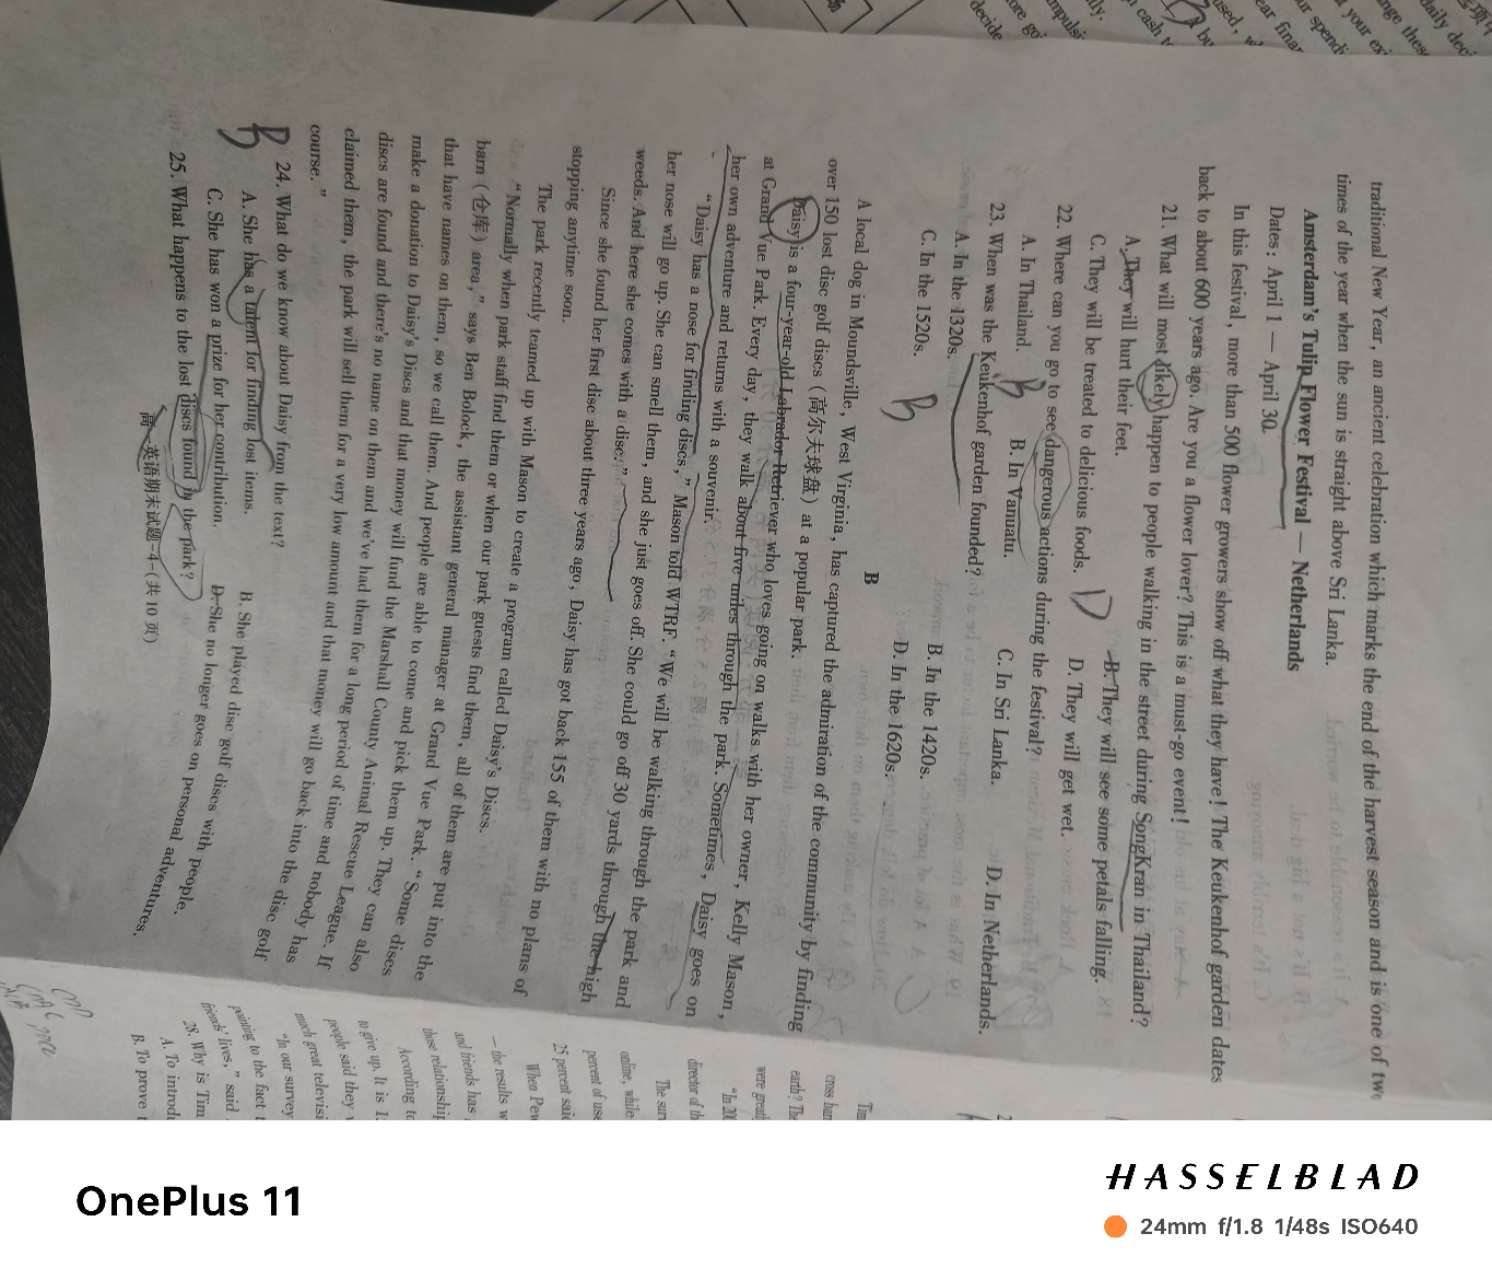 traditional New Year, an ancient celebration which marks the end of the harvest season and is one of two
times of the year when the sun is straight above Sri Lanka.
Amsterdam's Tulip Flower Festival — Netherlands
Dates: April 1 — April 30.
In this festival, more than 500 flower growers show off what they have! The Keukenhof garden dates
back to about 600 years ago. Are you a flower lover? This is a must-go event!
21. What will most likely happen to people walking in the street during SongKran in Thailand?
A. They will hurt their feet. B. They will see some petals falling.
C. They will be treated to delicious foods. D D. They will get wet.
22. Where can you go to see dangerous actions during the festival?
A. In Thailand. B B. In Vanuatu. C. In Sri Lanka. D. In Netherlands.
23. When was the Keukenhof garden founded?
A. In the 1320s. B. In the 1420s.
C. In the 1520s. B D. In the 1620s.
B
A local dog in Moundsville, West Virginia, has captured the admiration of the community by finding
over 150 lost disc golf discs (高尔夫球盘) at a popular park.
Daisy is a four-year-old Labrador Retriever who loves going on walks with her owner, Kelly Mason,
at Grand Vue Park. Every day, they walk about five miles through the park. Sometimes, Daisy goes on
her own adventure and returns with a souvenir.
"Daisy has a nose for finding discs," Mason told WTRF. "We will be walking through the park and
her nose will go up. She can smell them, and she just goes off. She could go off 30 yards through the high
weeds. And here she comes with a disc."
Since she found her first disc about three years ago, Daisy has got back 155 of them with no plans of
stopping anytime soon.
The park recently teamed up with Mason to create a program called Daisy's Discs.
"Normally when park staff find them or when our park guests find them, all of them are put into the
barn (仓库) area," says Ben Bolock, the assistant general manager at Grand Vue Park. "Some discs
that have names on them, so we call them. And people are able to come and pick them up. They can also
make a donation to Daisy's Discs and that money will fund the Marshall County Animal Rescue League. If
discs are found and there's no name on them and we've had them for a long period of time and nobody has
claimed them, the park will sell them for a very low amount and that money will go back into the disc golf
course."
24. What do we know about Daisy from the text?
A. She has a talent for finding lost items. B. She played disc golf discs with people.
C. She has won a prize for her contribution. D. She no longer goes on personal adventures.
25. What happens to the lost discs found in the park?
高一英语期末试题-4-(共 10 页)
cross
earth? The
were
"In 20
director of th
The sur
online, while
percent of use
25 percent said
When Pew
— the results w
and friends has
those relationship
According to
to give up. It is
people said they
much great televisi
"In our survey
pointing to the fact t
friends' lives," said
28. Why is Tim
A. To introdu
B. To prove t
OnePlus 11
HASSELBLAD
24mm f/1.8 1/48s ISO640